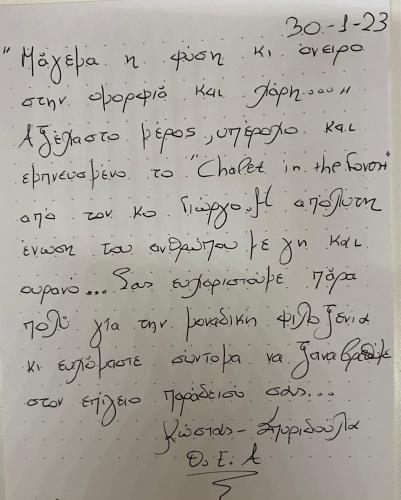 30-1-23
"Μάγεμα η φύση κι όνειρο
στην ομορφιά και χάρη...."
Αξέχαστο μέρος, υπέροχο και
εμπνευσμένο το "Chalet in the forest"
από τον κο Γιώργο. Η απόλυτη
ένωση του ανθρώπου με γη και
ουρανό... Σας ευχαριστούμε πάρα
πολύ για την μοναδική φιλοξενία
κι ευχόμαστε σύντομα να ξαναβρεθούμε
στον επίγειο παράδεισό σας...
Κώστας - Σπυριδούλα
Θ. Ε. Α